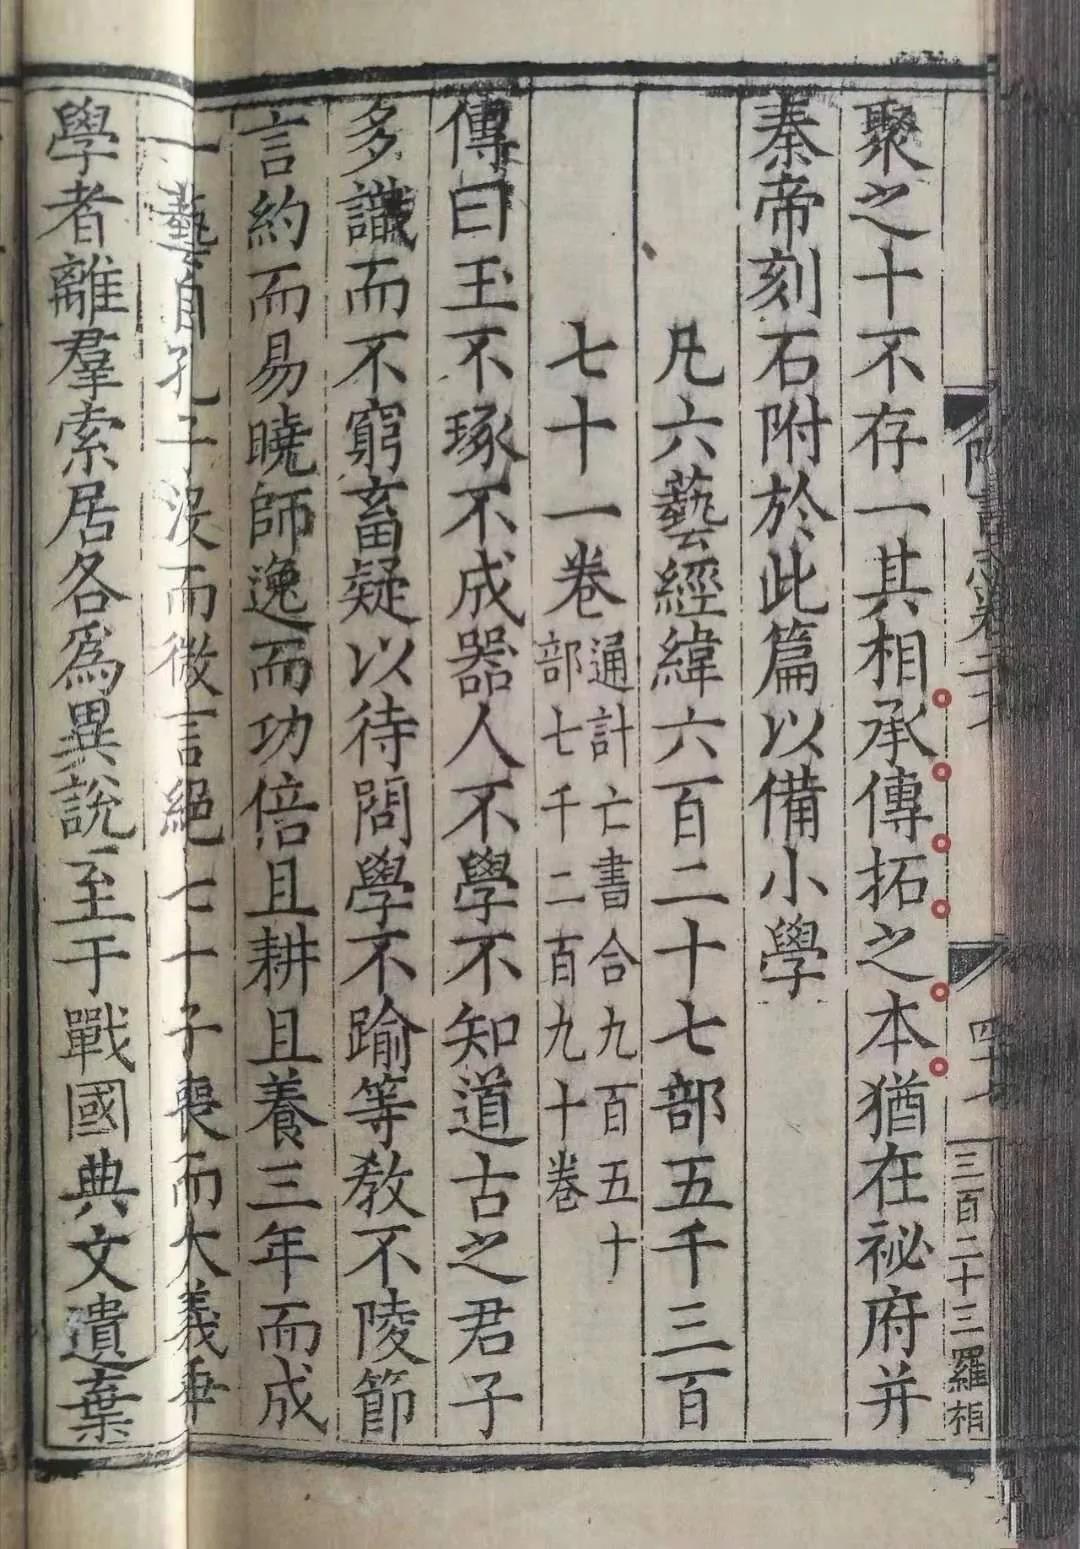 聚之十不存一其相承傳拓之本猶在祕府并
秦帝刻石附於此篇以備小學
凡六藝經緯六百二十七部五千三百
七十一卷
通計亡書合九百五十
部七千二百九十卷
傳曰玉不琢不成器人不學不知道古之君子
多識而不窮畜疑以待問學不踰等教不陵節
言約而易曉師逸而功倍且耕且養三年而成
一藝自孔子沒而微言絕七十子喪而大義乖
學者離羣索居各爲異說至于戰國典文遺棄
三百二十三羅相